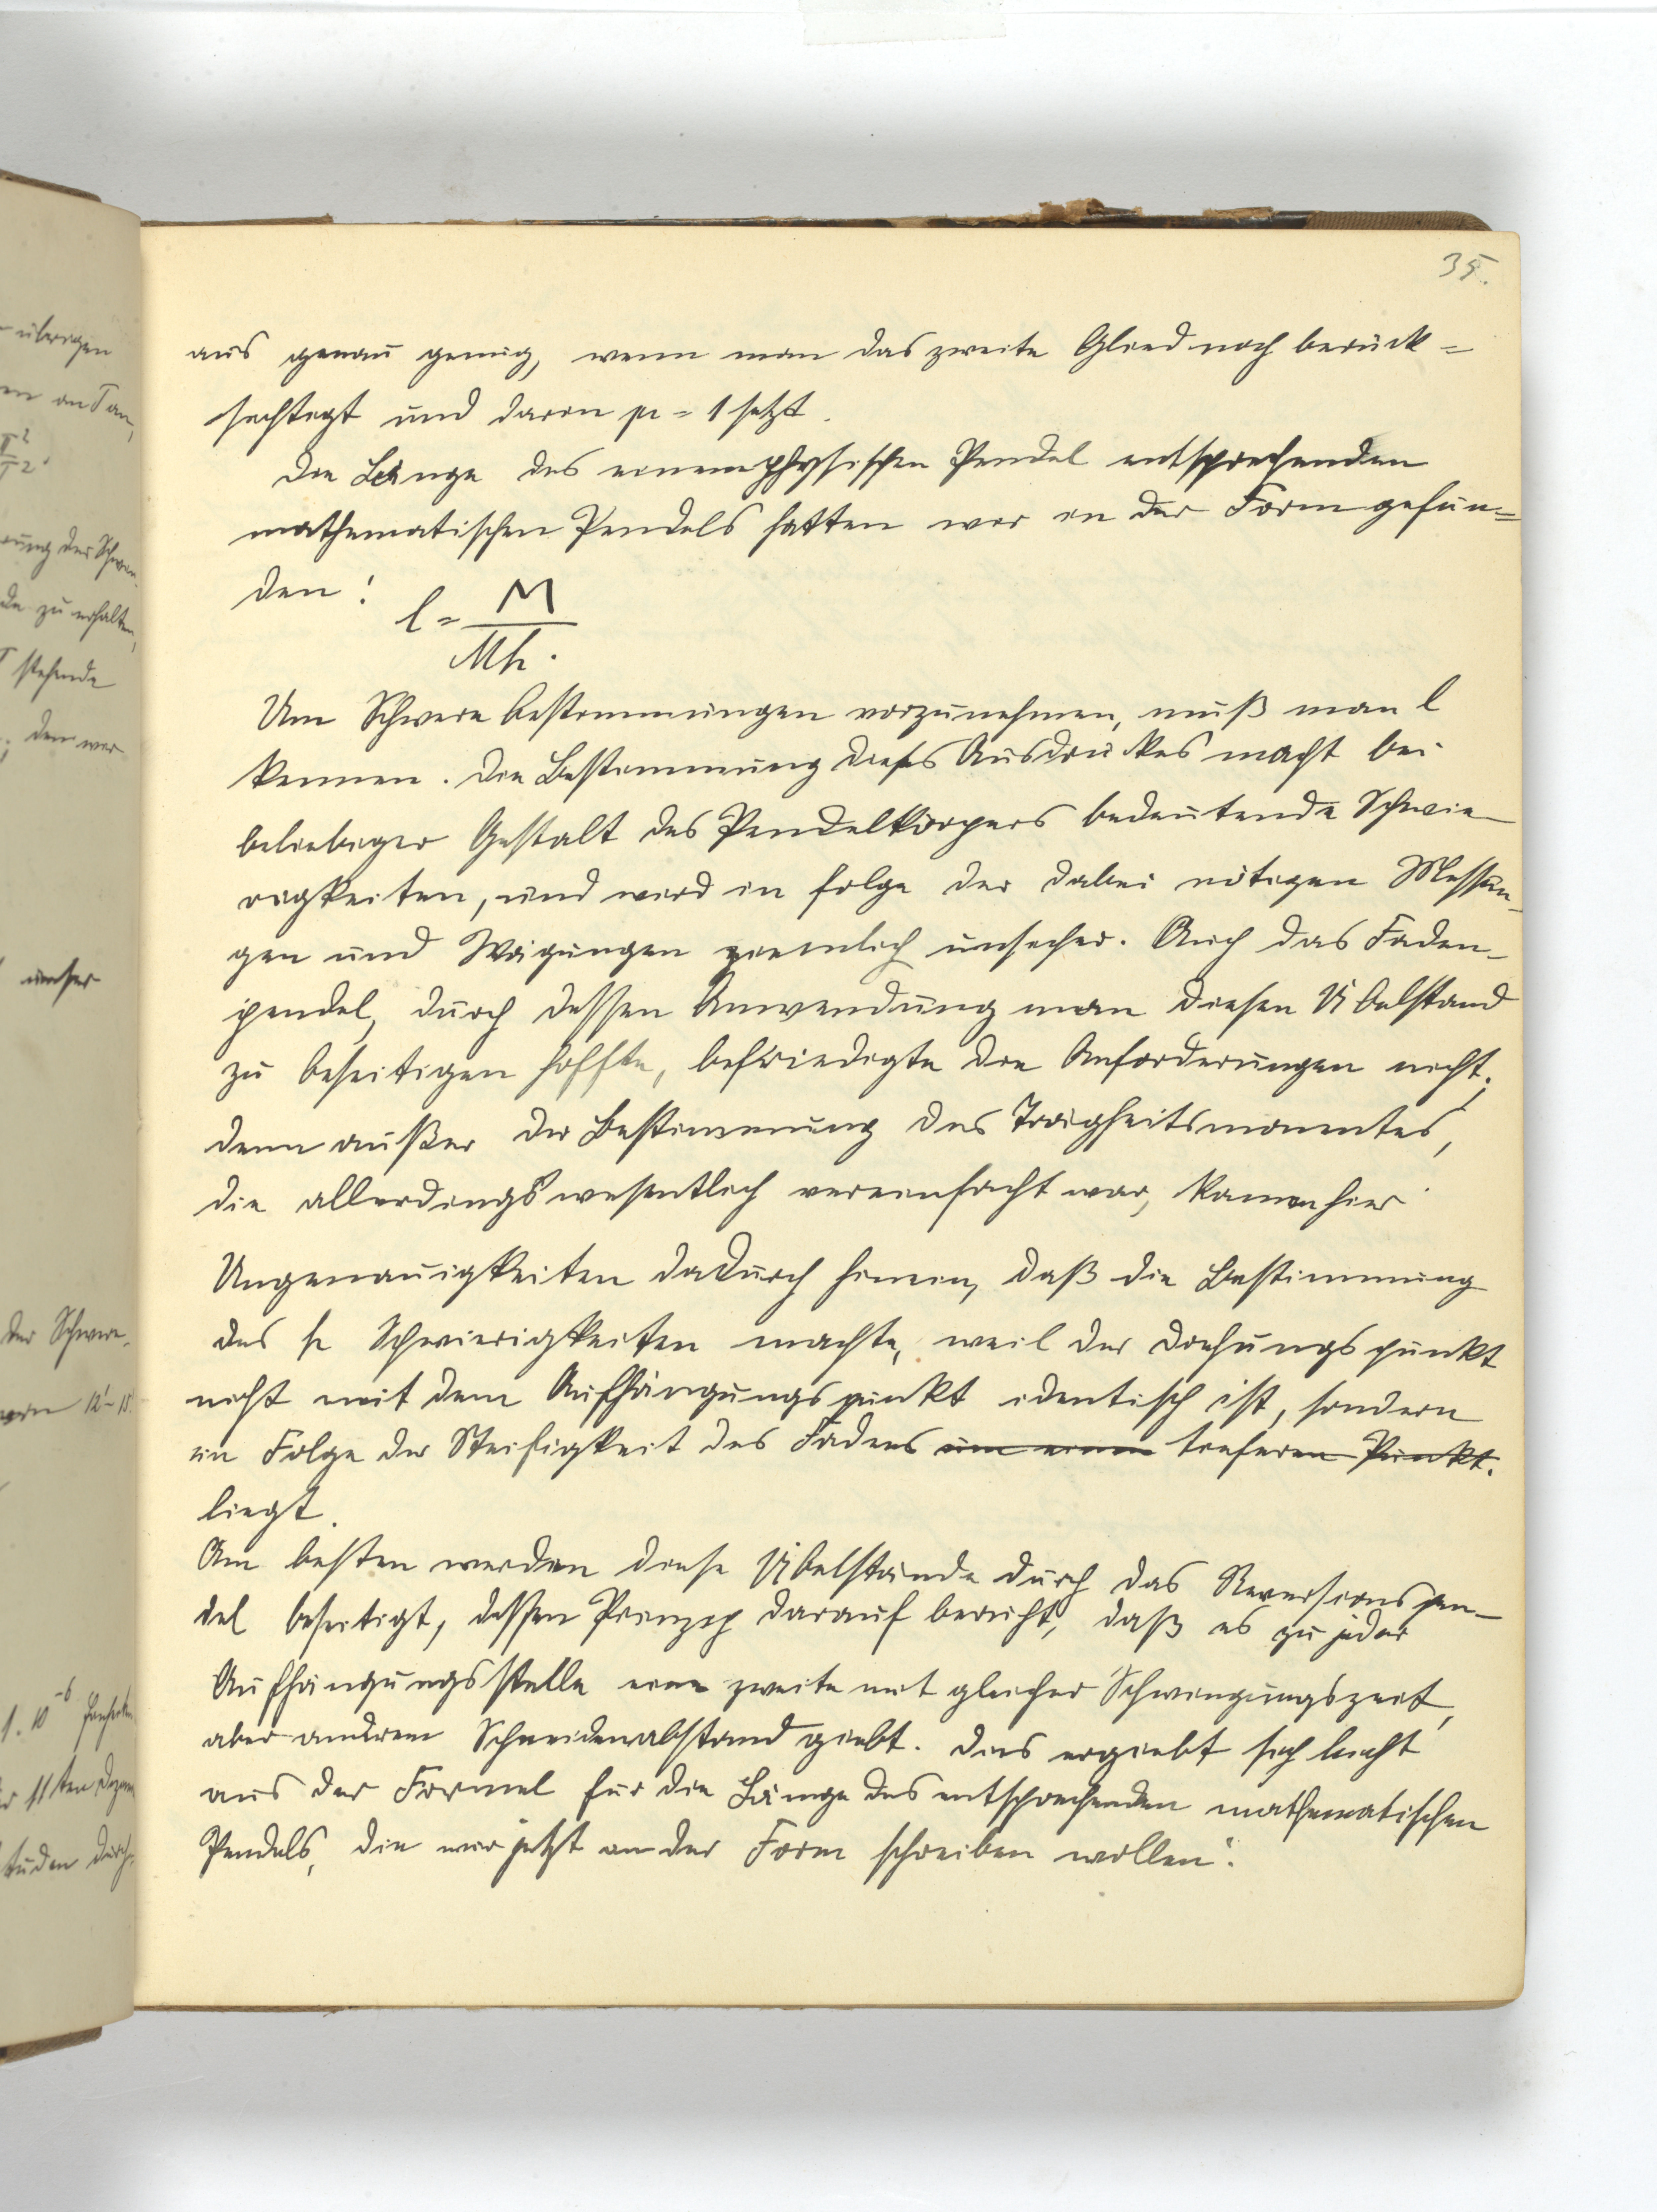 35.
aus genau genug, wenn man das zweite Glied noch berück=
sichtigt und darin n = 1 setzt.
Die Länge des einem physischen Pendel entsprechenden
mathematischen Pendels hatten wir in der Form gefun=
den:
l = M / Mh.
Um Schwere bestimmungen vorzunehmen, muß man l
kennen. Die Bestimmung dieses Ausdruckes macht bei
beliebiger Gestalt des Pendelkörpers bedeutende Schwie-
rigkeiten, und wird in folge der dabei nötigen Messun-
gen und Wägungen ziemlich unsicher. Auch das Faden-
pendel, durch dessen Anwendung man diesen Übelstand
zu beseitigen hoffte, befriedigte die Anforderungen nicht;
denn außer der Bestimmung des Trägheitsmomentes,
die allerdings wesentlich vereinfacht war, kamen hier
Ungenauigkeiten dadurch hinein, daß die Bestimmung
des h Schwierigkeiten machte, weil der Drehungspunkt
nicht mit dem Aufhängungspunkt identisch ist, sondern
in Folge der Steifigkeit des Fadens um einen tieferen Punkt.
liegt.
Am besten werden diese Übelstände durch das Reversionspen-
del beseitigt, dessen Prinzip darauf beruht, daß es zu jeder
Aufhängungsstelle eine zweite mit gleicher Schwingungszeit,
aber anderem Schneidenabstand giebt. Dies ergiebt sich leicht
aus der Formel für die Länge des entsprechenden mathematischen
Pendels, die wir jetzt in der Form schreiben wollen:
übrigen
zu erhalten,
stehende
unser
der Schwere-
12'-15'